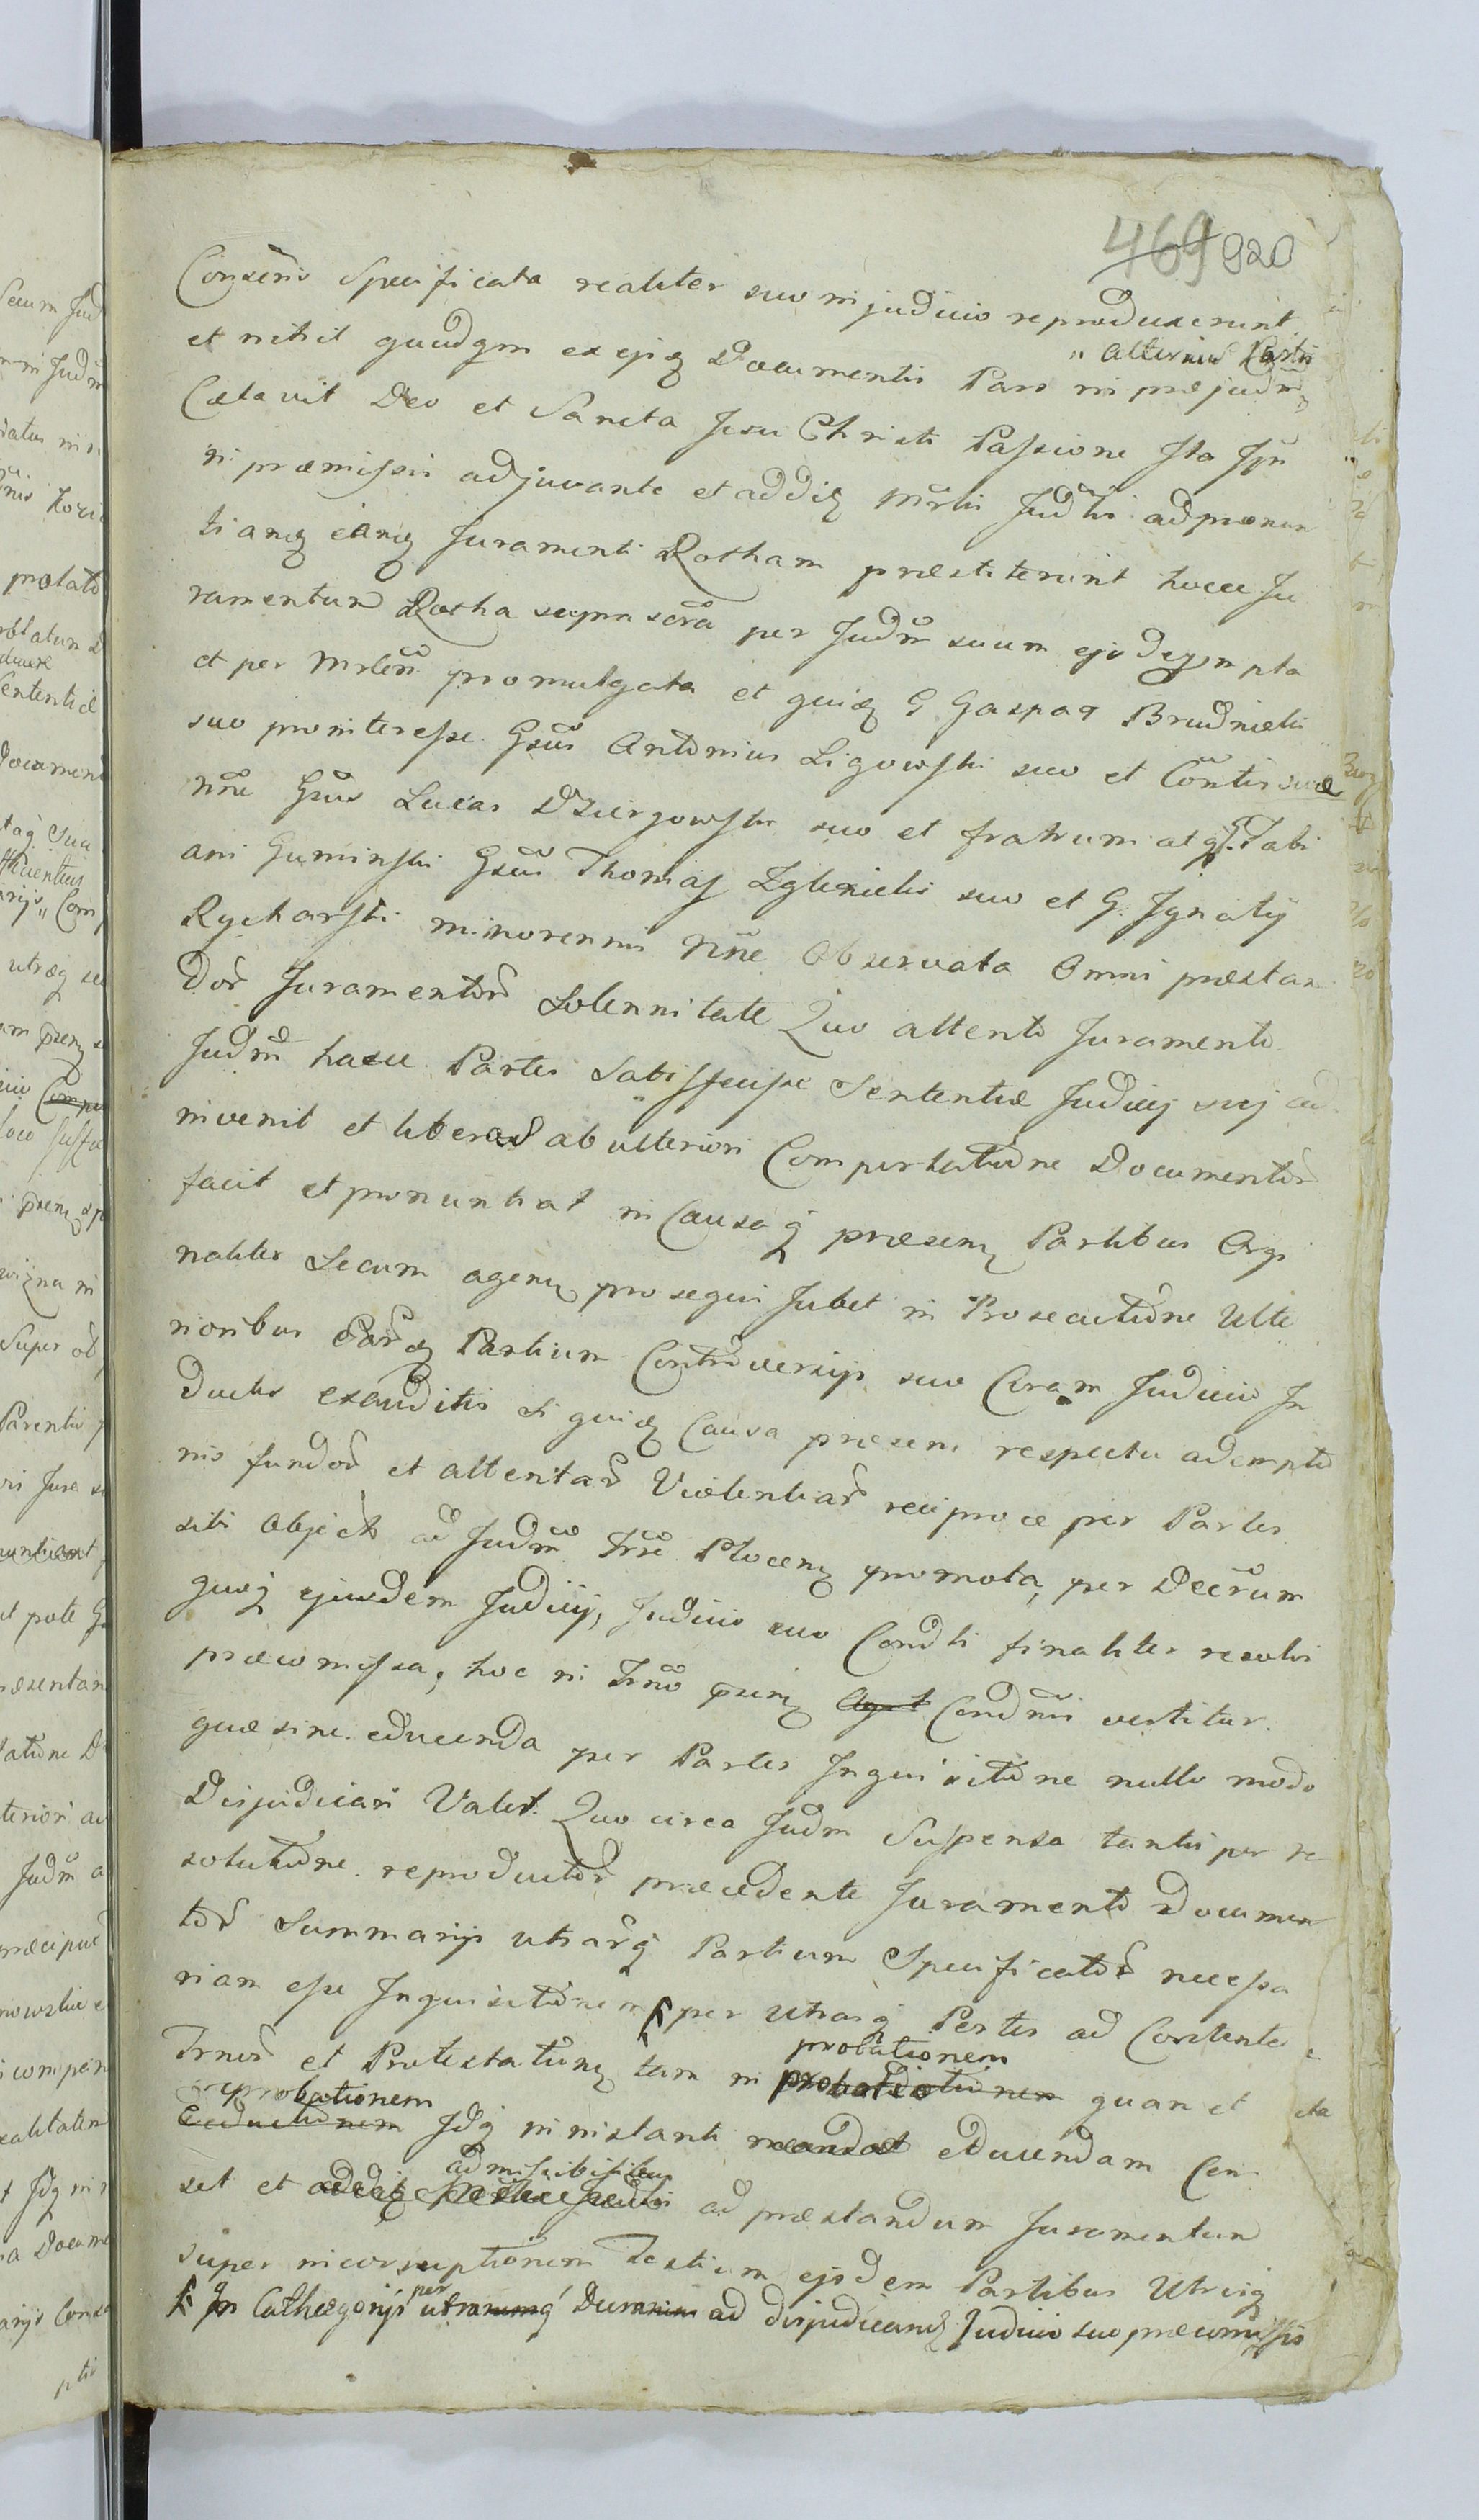 469 820
Conseris Specificata realiter suo in judicio reproduxerunt
et nihil quidqm ex ejsq Documentis Pars in præjudm
"alterius Partis
Celavit Deo et Sancta Jesu Christi Passione Ita Ipn
in præmissis adjuvante et addiq Mrlii Judli ad pronun
tianq eanq Juramenti Rotham præstiterunt hocce Ju
ramentum Rotha supra scra per Judm suum ejsdempta
et per Mrlem promulgata et quidq G Gaspar Brudnicki
suo proniteresse. Gsus Antonius Ligowski suo et Contis suæ
nne Gsus Lucas Dziergowski suo et fratrum atq G. Fabi
ani Guminski Gsus Thomas Zglenicki suo et G. Ignatij
Rycharski minorennis Nne Observata Omni præstan
dor Juramentor Solennitate Quo attento Juramento
Judm hasce Partes Satisfecisse Sententiæ Judicij suj ad
invenit et liberas ab ulteriori Comportatione Documentor
facit et pronuntiat in Causa q præsenq Partibus Orgi
naliter Secum agenq prosequi Jubet in Prosecutione Ulte
rioribus Earq Partium Controversijs suo Coram Judicio In
ductis exauditis Siquidq Causa præsens respectu ademptio
nis fundor et attentar Violentiar reciproce per Partes
sibi Object ad Judm Trre Plocenq promota, per Decrum
quoq ejusdem Judicij, Judicio suo Condli finaliter resolvi
præcomissa, hoc in Trno præsenq Agit Condnii vertitur.
quæ sine educenda per Partes Inquisitione nullo modo
Disjudicari Valet. Quo circa Judm Suspensa tantisper re
solutione reproductor præcedente Juramento Documen
tor Summarijs utrarq Partium Specificator necessa
riam esse Inquisitionem per Utrasq Partes ad Contenta
Trnor et Protestationq tam in probationem quan et
reprobationem
Eductionem Idq in instanti mandat educendam Cen
set et admissibilibus ad præstandum Juramentum
super incorruptionem Testium ejsdem Partibus Utriusq
In Cathegorijs per utramq Dumnim ad disjudicand Judicio suo præcomissis